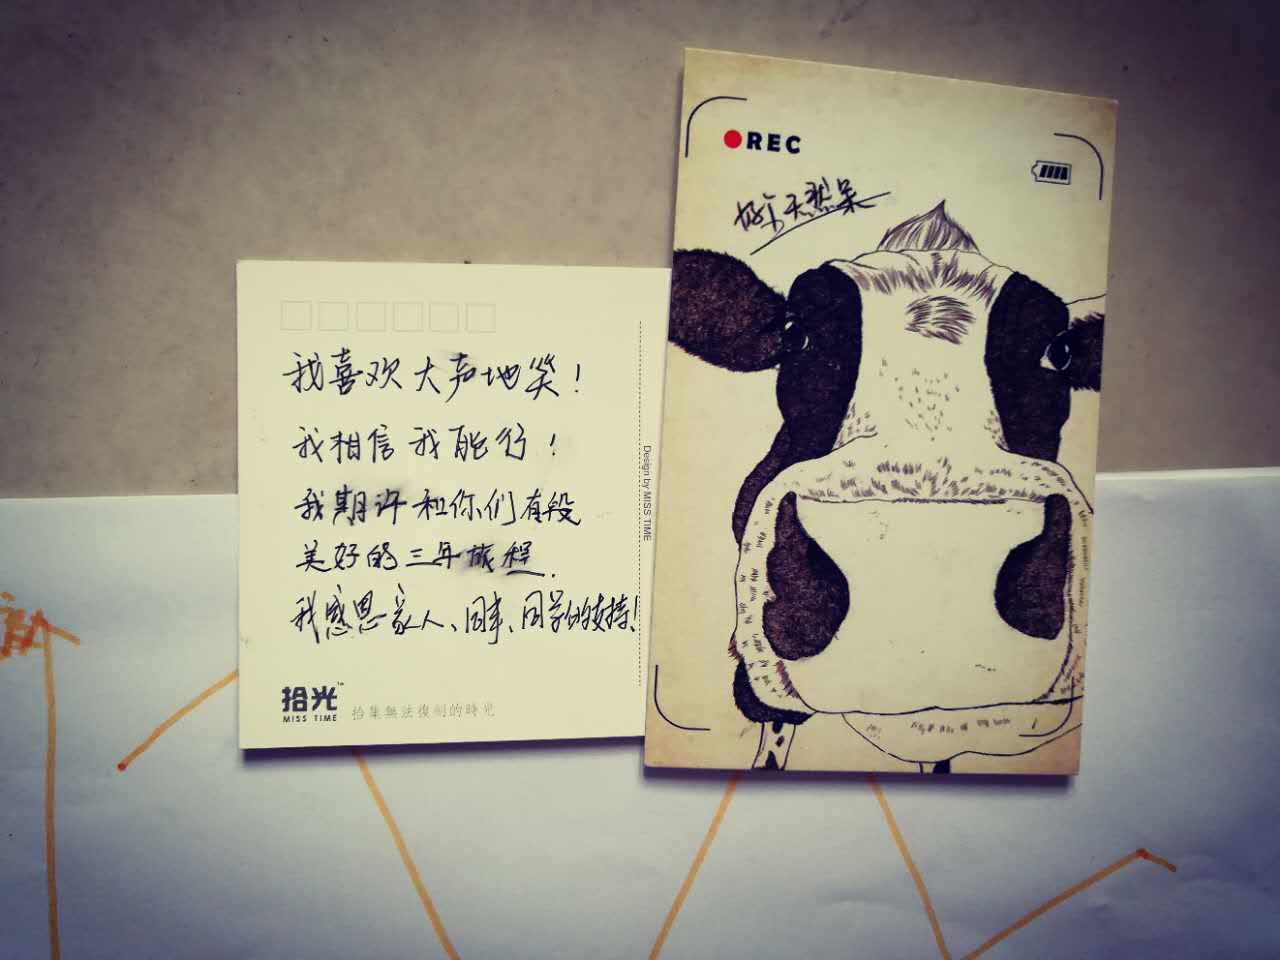 我喜欢大声地笑！
我相信我能行！
我期许和你们有段
美好的三年旅程.
我感恩家人、同事、同学的支持！
拾光™
MISS TIME
拾集無法復刻的時光
Design by MISS TIME
REC
天然呆